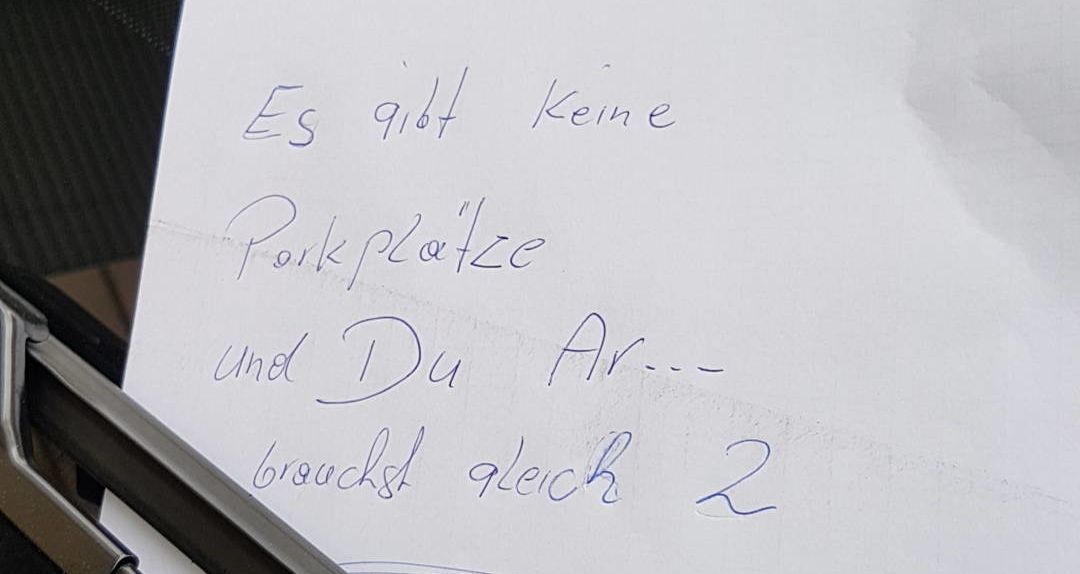 Es gibt keine
Parkplätze
und Du Ar...
brauchst gleich 2